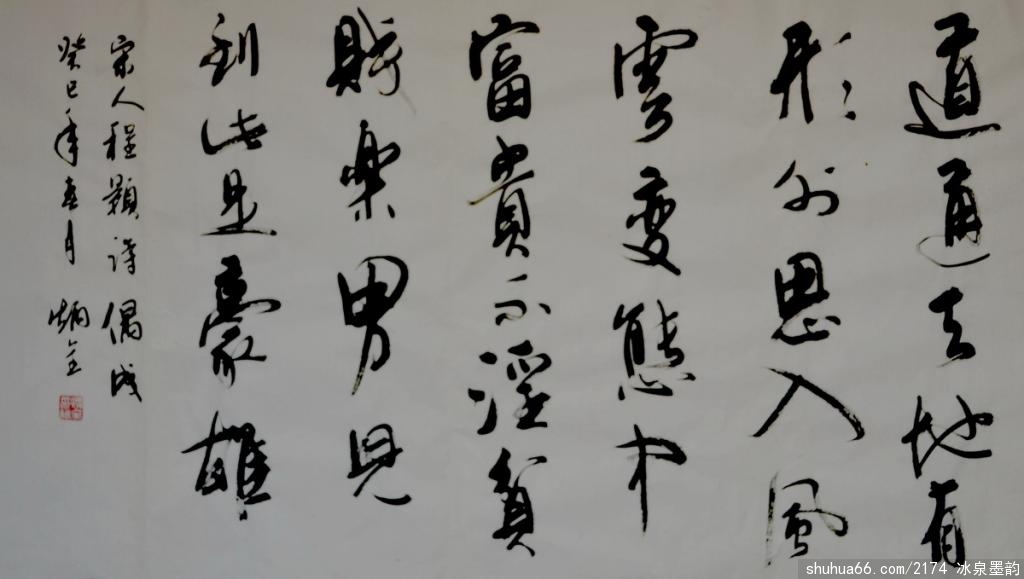 道通天地有
形外思入風
雲變態中
富貴不淫貧
賤樂男児
到此是豪雄
宋人程顥詩偶成
癸巳年春月 炳全
shuhua66.com/2174 冰泉墨韵